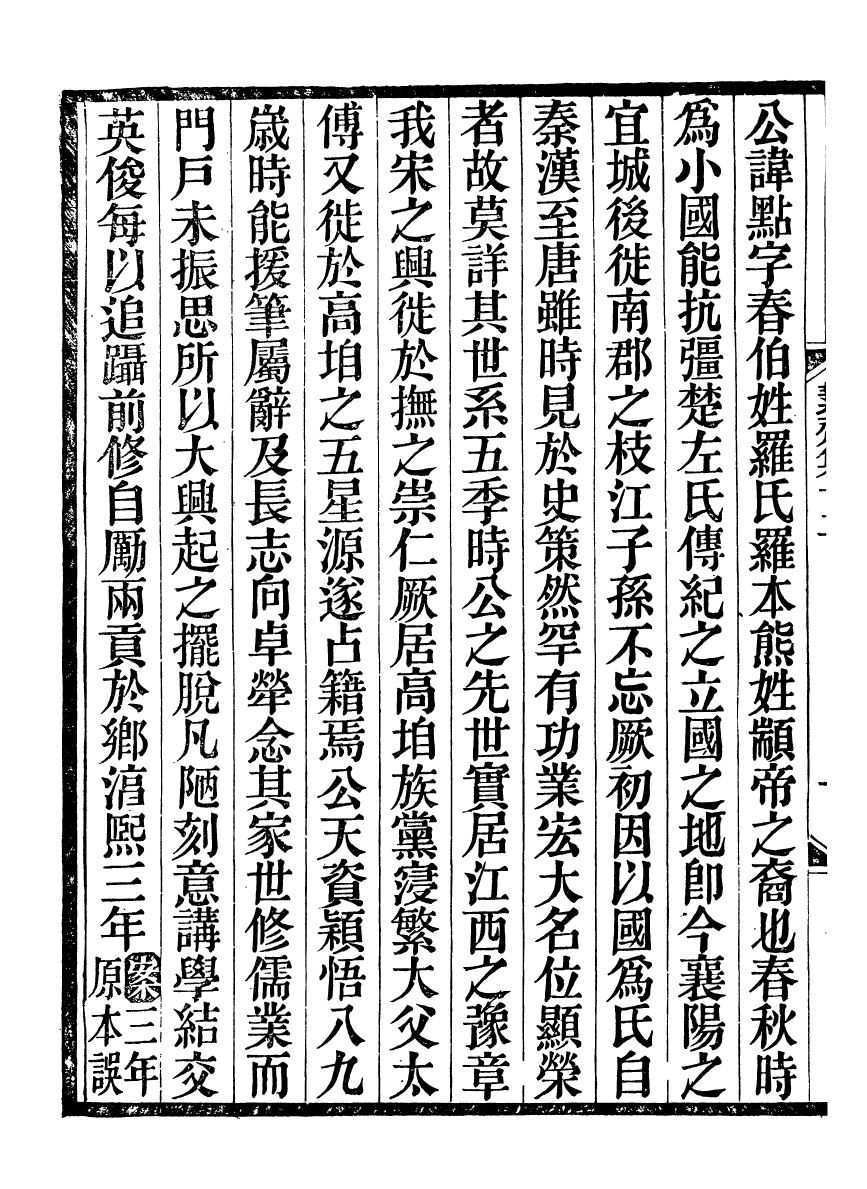 公諱點字春伯姓羅氏羅本熊姓顓帝之裔也春秋時
爲小國能抗彊楚左氏傳紀之立國之地卽今襄陽之
宜城後徙南郡之枝江子孫不忘厥初因以國爲氏自
秦漢至唐雖時見於史策然罕有功業宏大名位顯榮
者故莫詳其世系五季時公之先世實居江西之豫章
我宋之興徙於撫之崇仁厥居高㘴族黨寖繁大父太
傅又徙於高㘴之五星源遂占籍焉公天資穎悟八九
歲時能援筆屬辭及長志向卓犖念其家世修儒業而
門戸未振思所以大興起之擺脫凡陋刻意講學結交
英俊每以追躡前修自勵兩貢於鄉淳熙三年案三年
原本誤